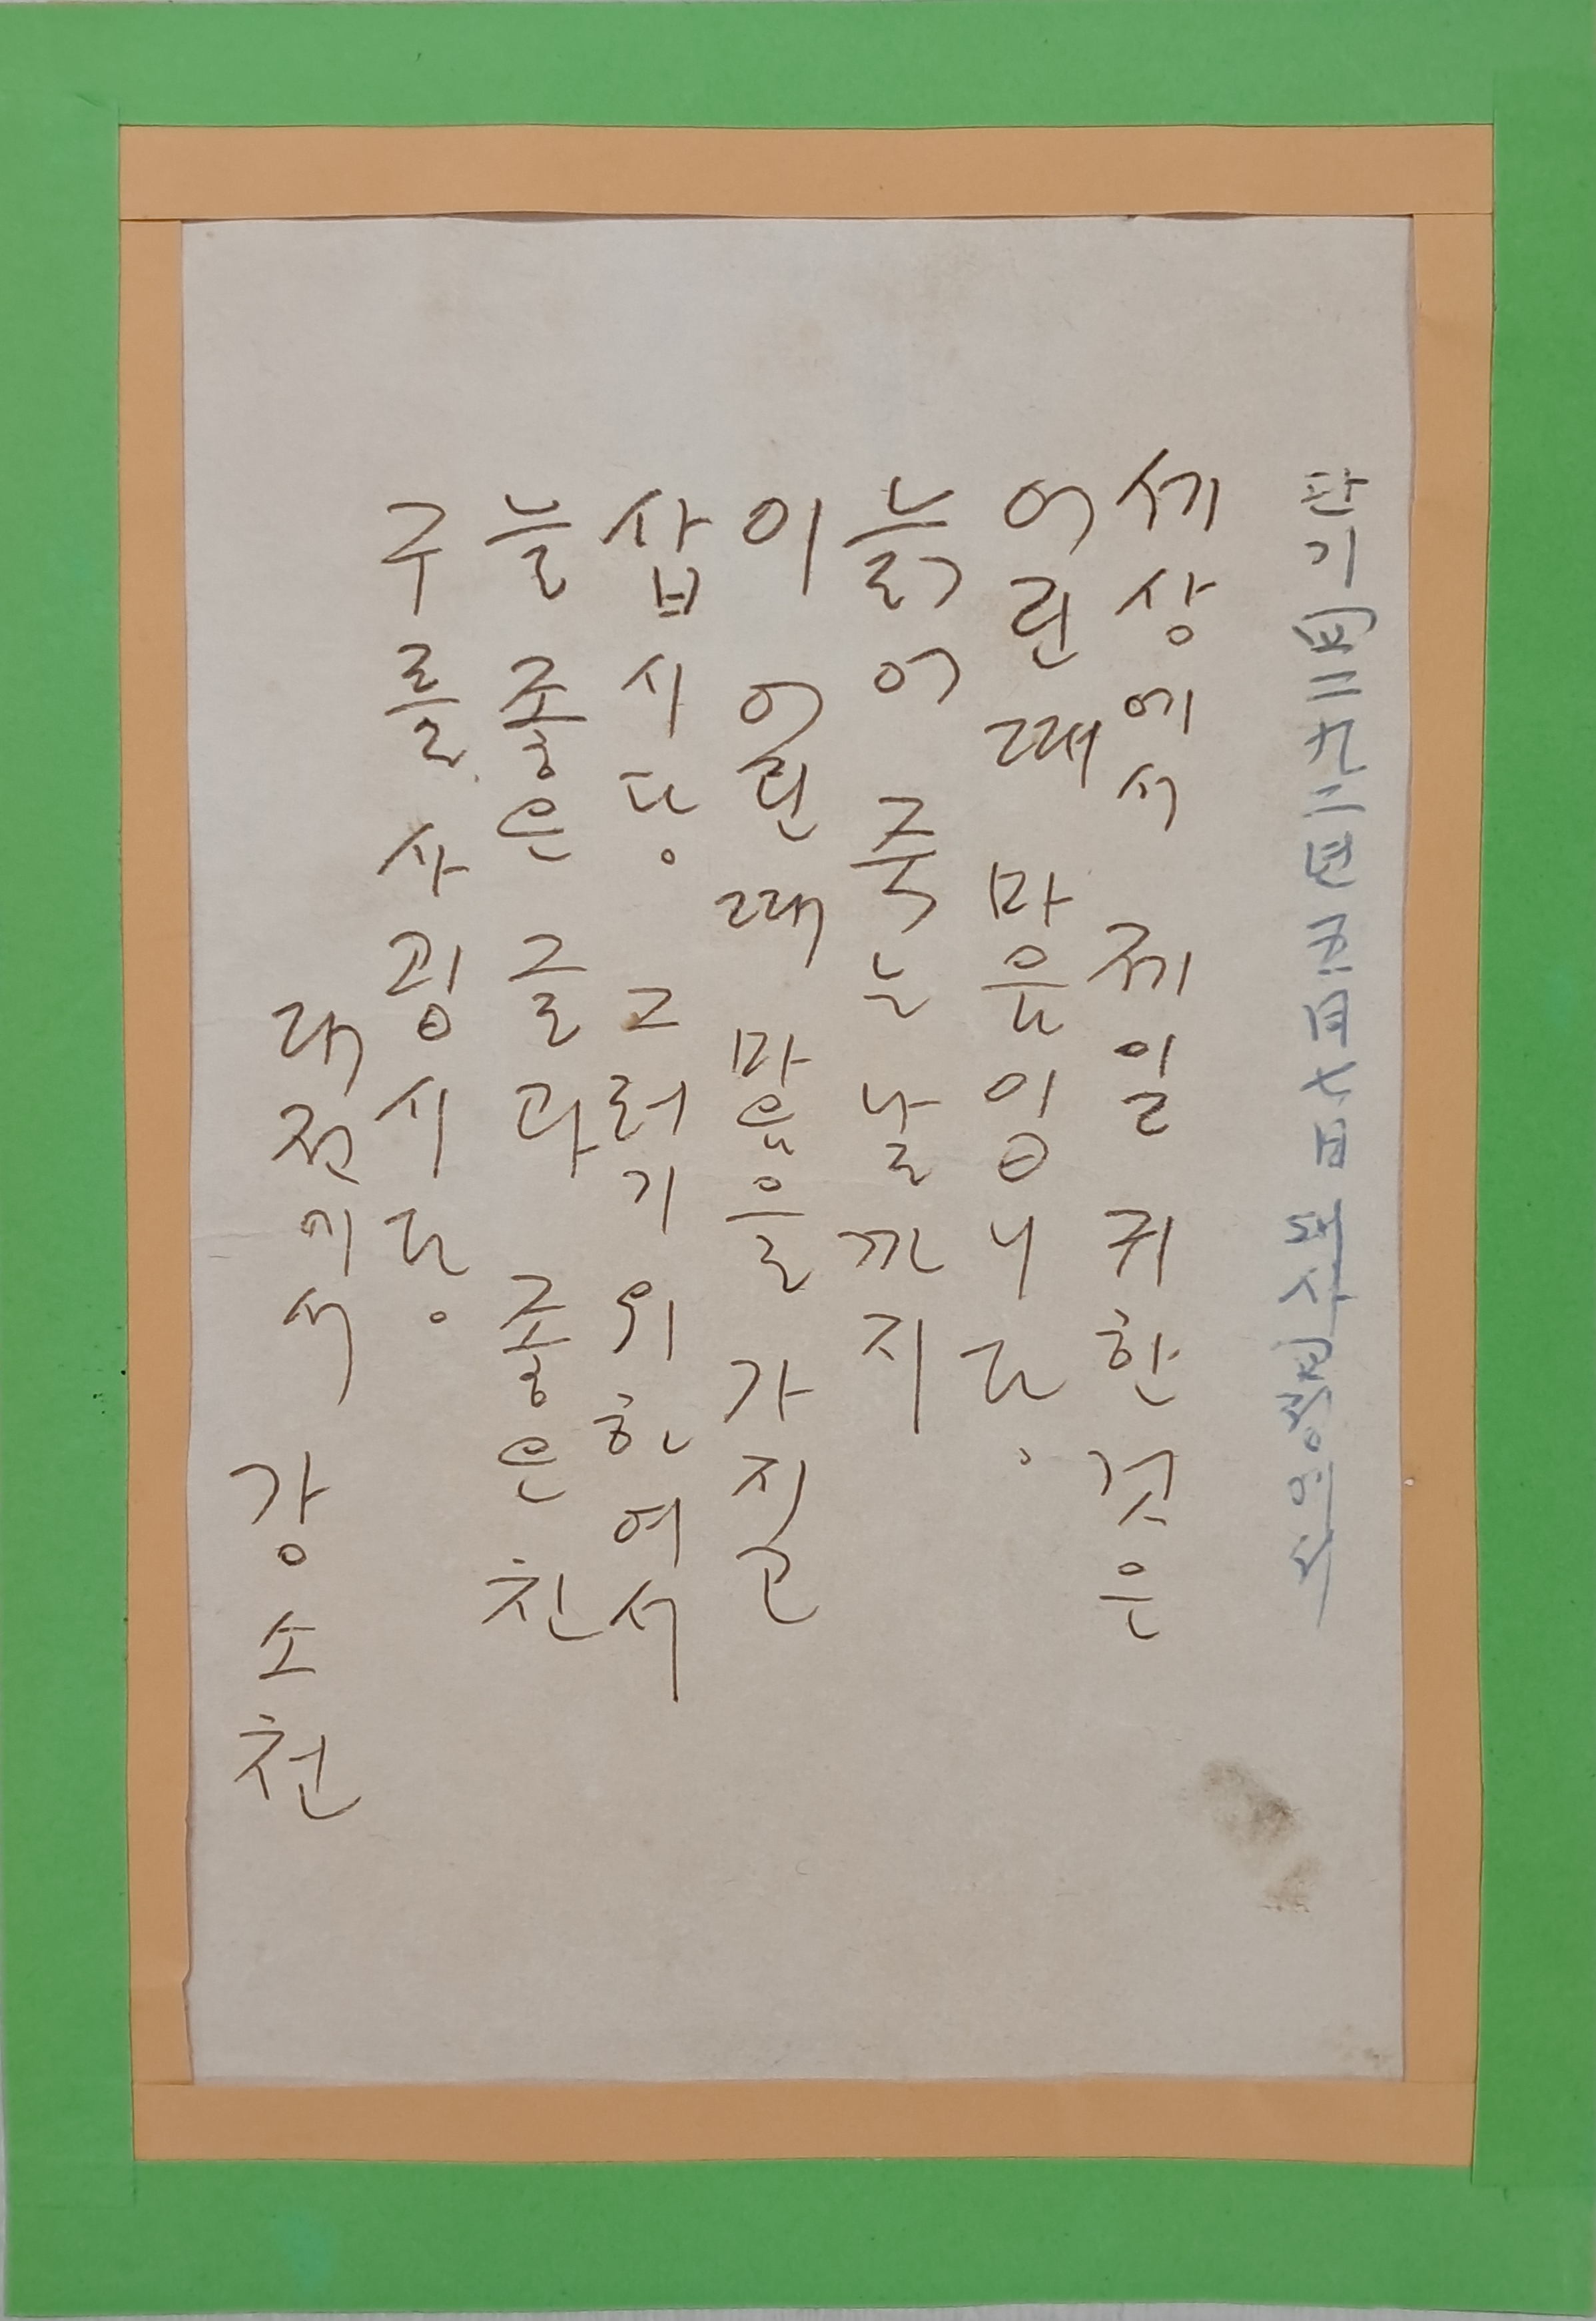 단기 四二九二年 五月 七日
세상에서 제일 귀한 것은
어린 때 마음입니다.
늙어 죽는 날까지
이 어린 때 마음을 가지고
삽시다. 그러기 위하여서
늘 좋은 글과 좋은 친
구를 사굅시다.
대전에서 강소천